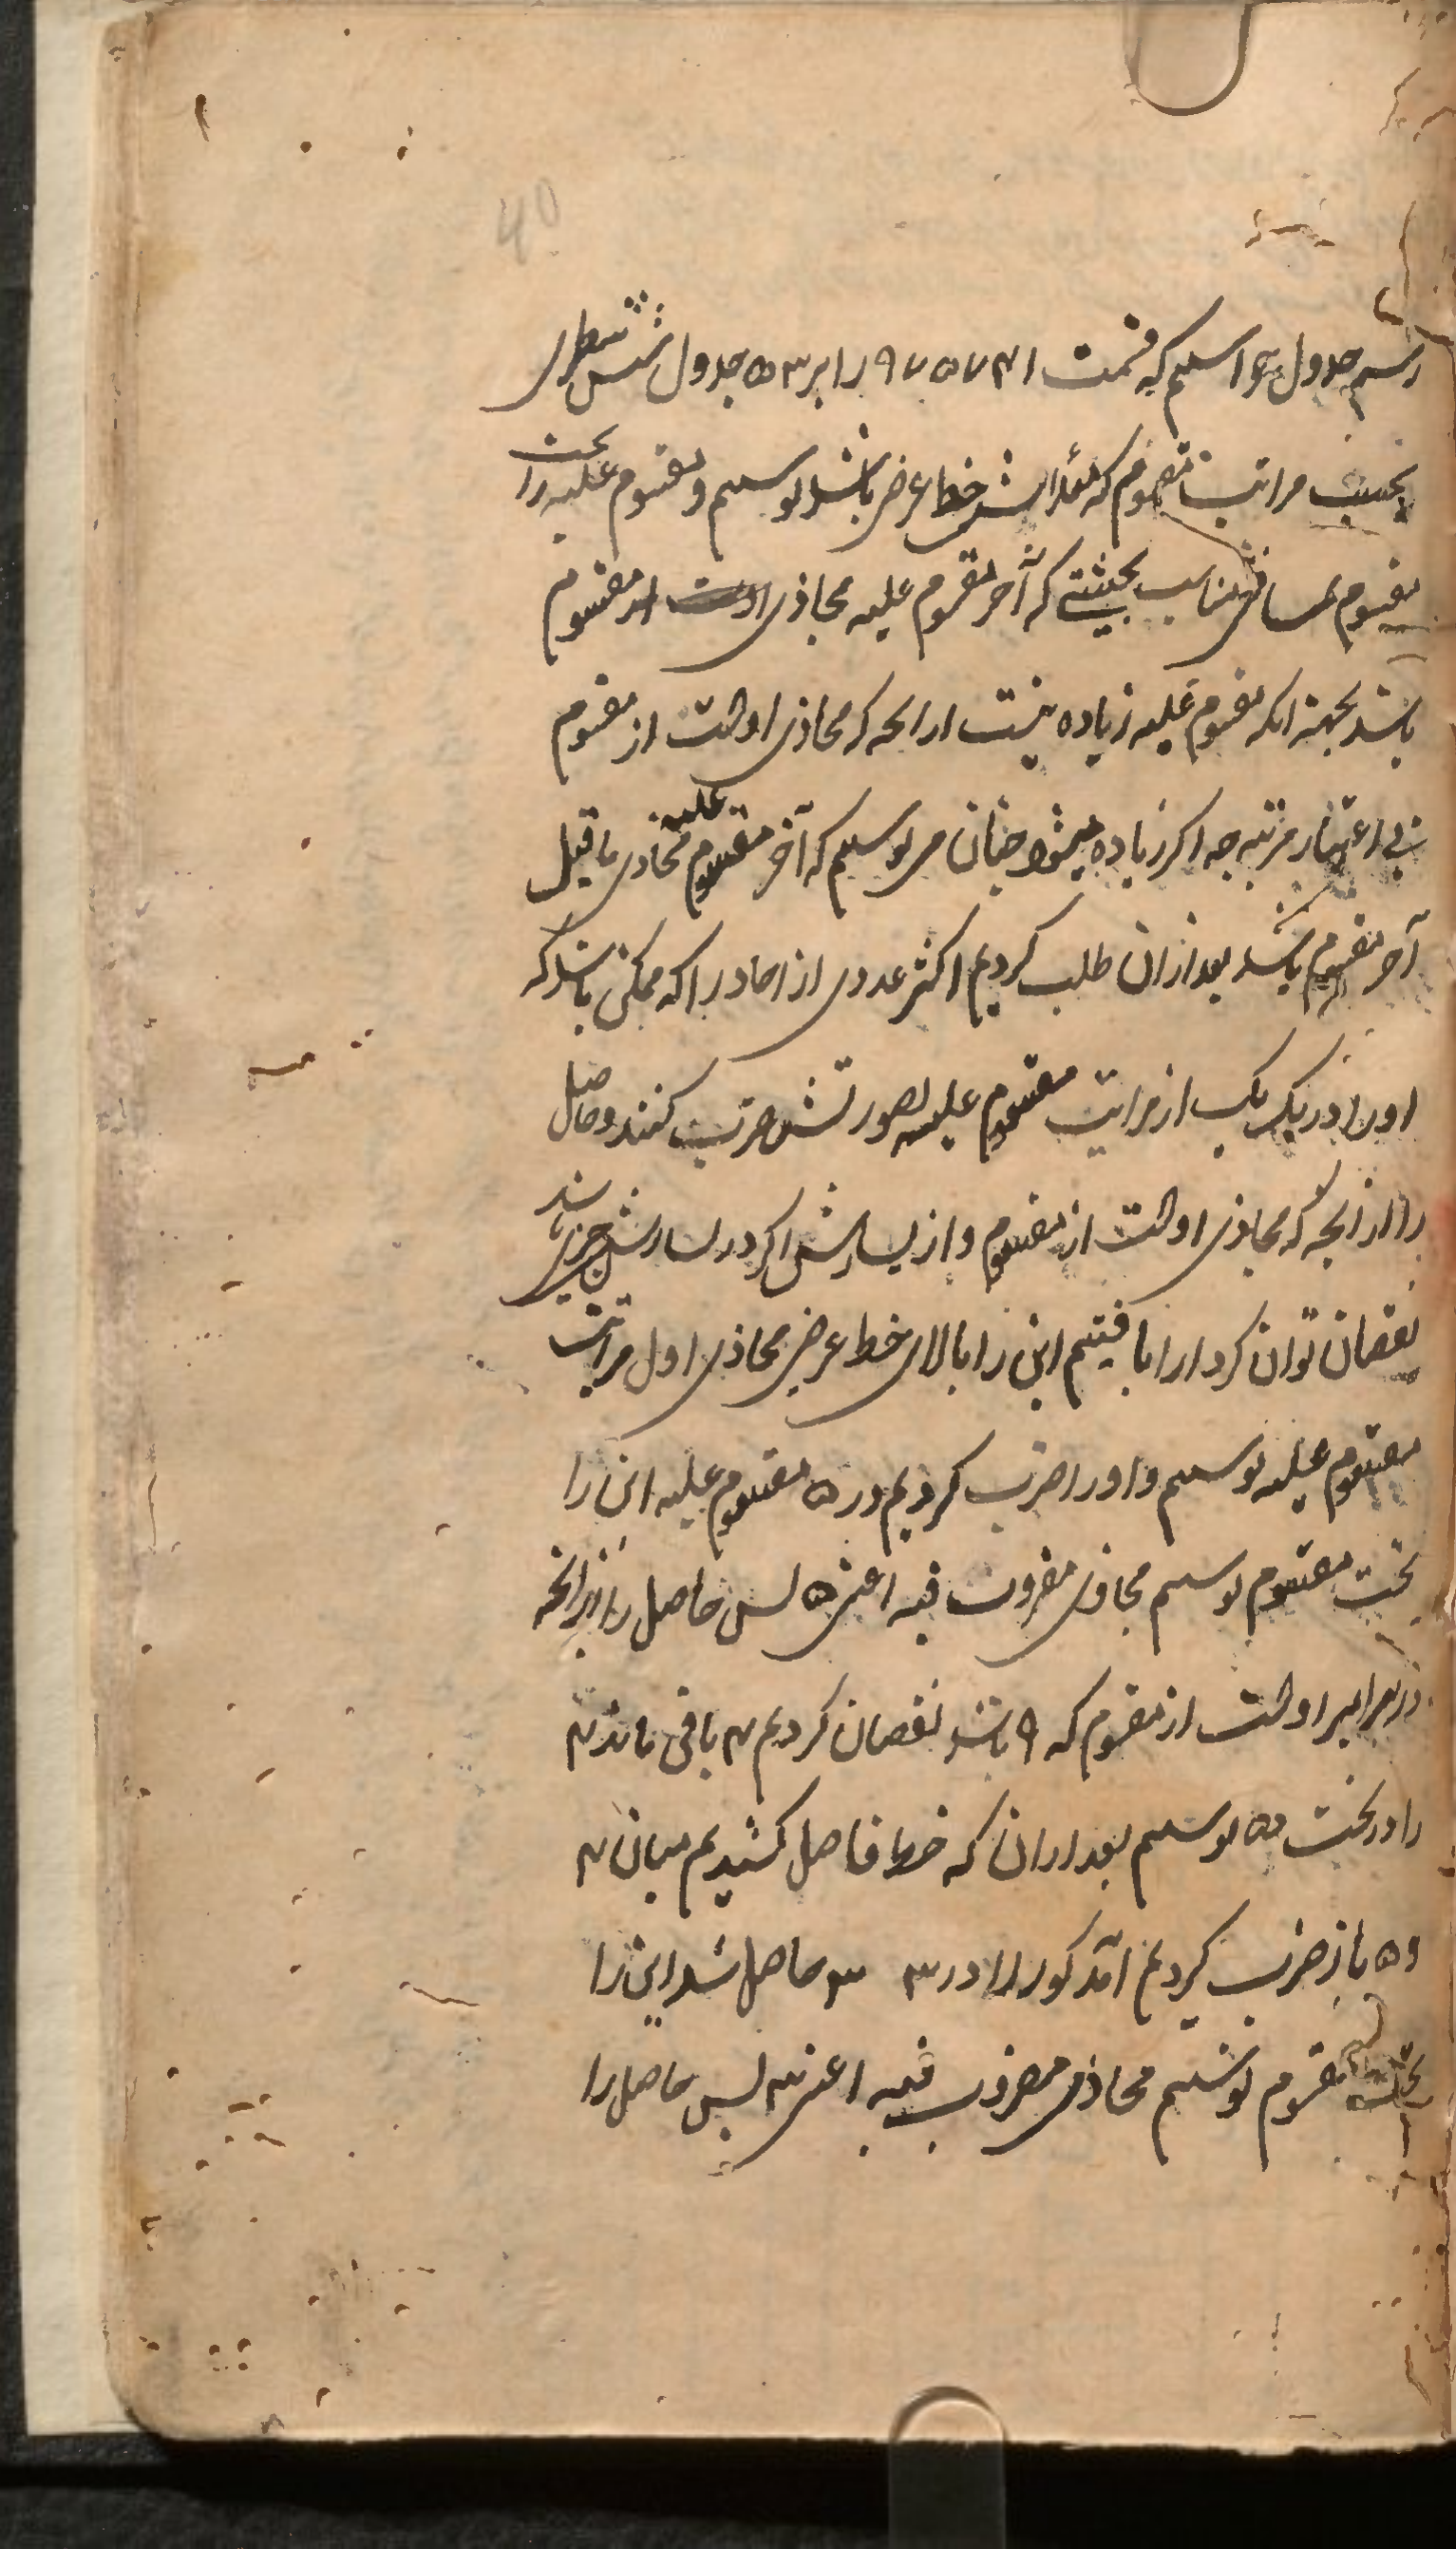 40
رسم جدول خواستیم که قسمت ۹۷۵۷۴۱ را بر ۵۳ جدول شش سطری
بحسب مراتب مقسوم که مبداش خط عرض باشد نوشتیم و مقسوم علیه را تحت
مقسوم بمسافتی مناسب بحیثیتی که آخر مقسوم علیه محاذی از مقسوم
باشد بجهة انکه مقسوم علیه زیاده نیست از انچه که محاذی اوست از مقسوم
بی اعتبار مرتبه چه اکر زیاده میشود چنان می نوشتیم که آخر مقسوم علیه محاذی ماقبل
آخر مقسوم باشد بعد ازان طلب کردیم اکثر عددی از احاد را که ممکن باشد که
او را در یک یک از مراتب مقسوم علیه بصورتش ضرب کنند و حاصل
را از انچه که محاذی اوست از مقسوم و از یسارش اکر در یسارش چیزی باشد
نقصان توان کرد ا را یافتیم این را بالای خط عرضی محاذی اول مراتب
مقسوم علیه نوشتیم و او را ضرب کردیم در ۵ مقسوم علیه این را
تحت مقسوم نوشتیم محاذی مضروب فیه اعنی ۵ پس حاصل را از انچه
در برابر اوست از مقسوم که ۹ باشد نقصان کردیم ۴ باقی ماند ۴
را در تحت ۵ نوشتیم بعد ازان که خط فاصل کشیدیم میان ۴
و ۵ باز ضرب کردیم ا مذکور را در ۳ ۳ حاصل شد این را
تحت مقسوم نوشتیم محاذی مضروب فیه اعنی ۳ پس حاصل را